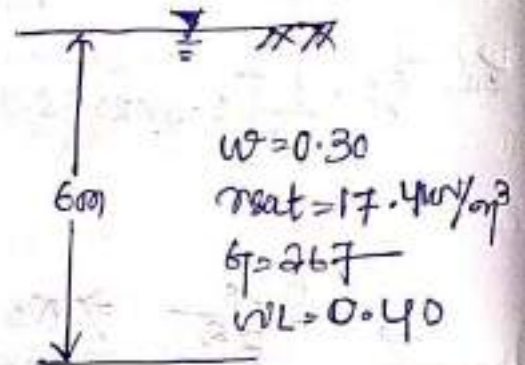 w=0.30
6m
γsat=17.4kN/m³
G=267
wL=0.40